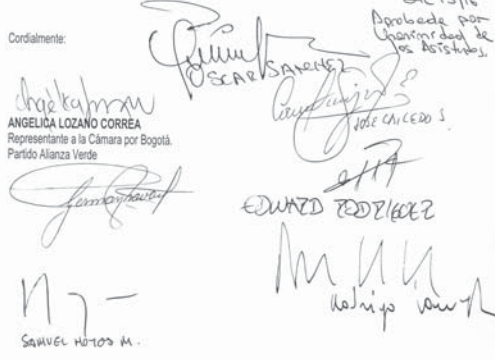 Cordialmente:
Aprobada por
Unanimidad de
los Asistentes.
OSCAR SANCHEZ
JOSE CAICEDO S.
ANGELICA LOZANO CORREA
Representante a la Cámara por Bogotá.
Partido Alianza Verde
EDWARD RODRIGUEZ
Rodrigo
SAMUEL HOYOS M.